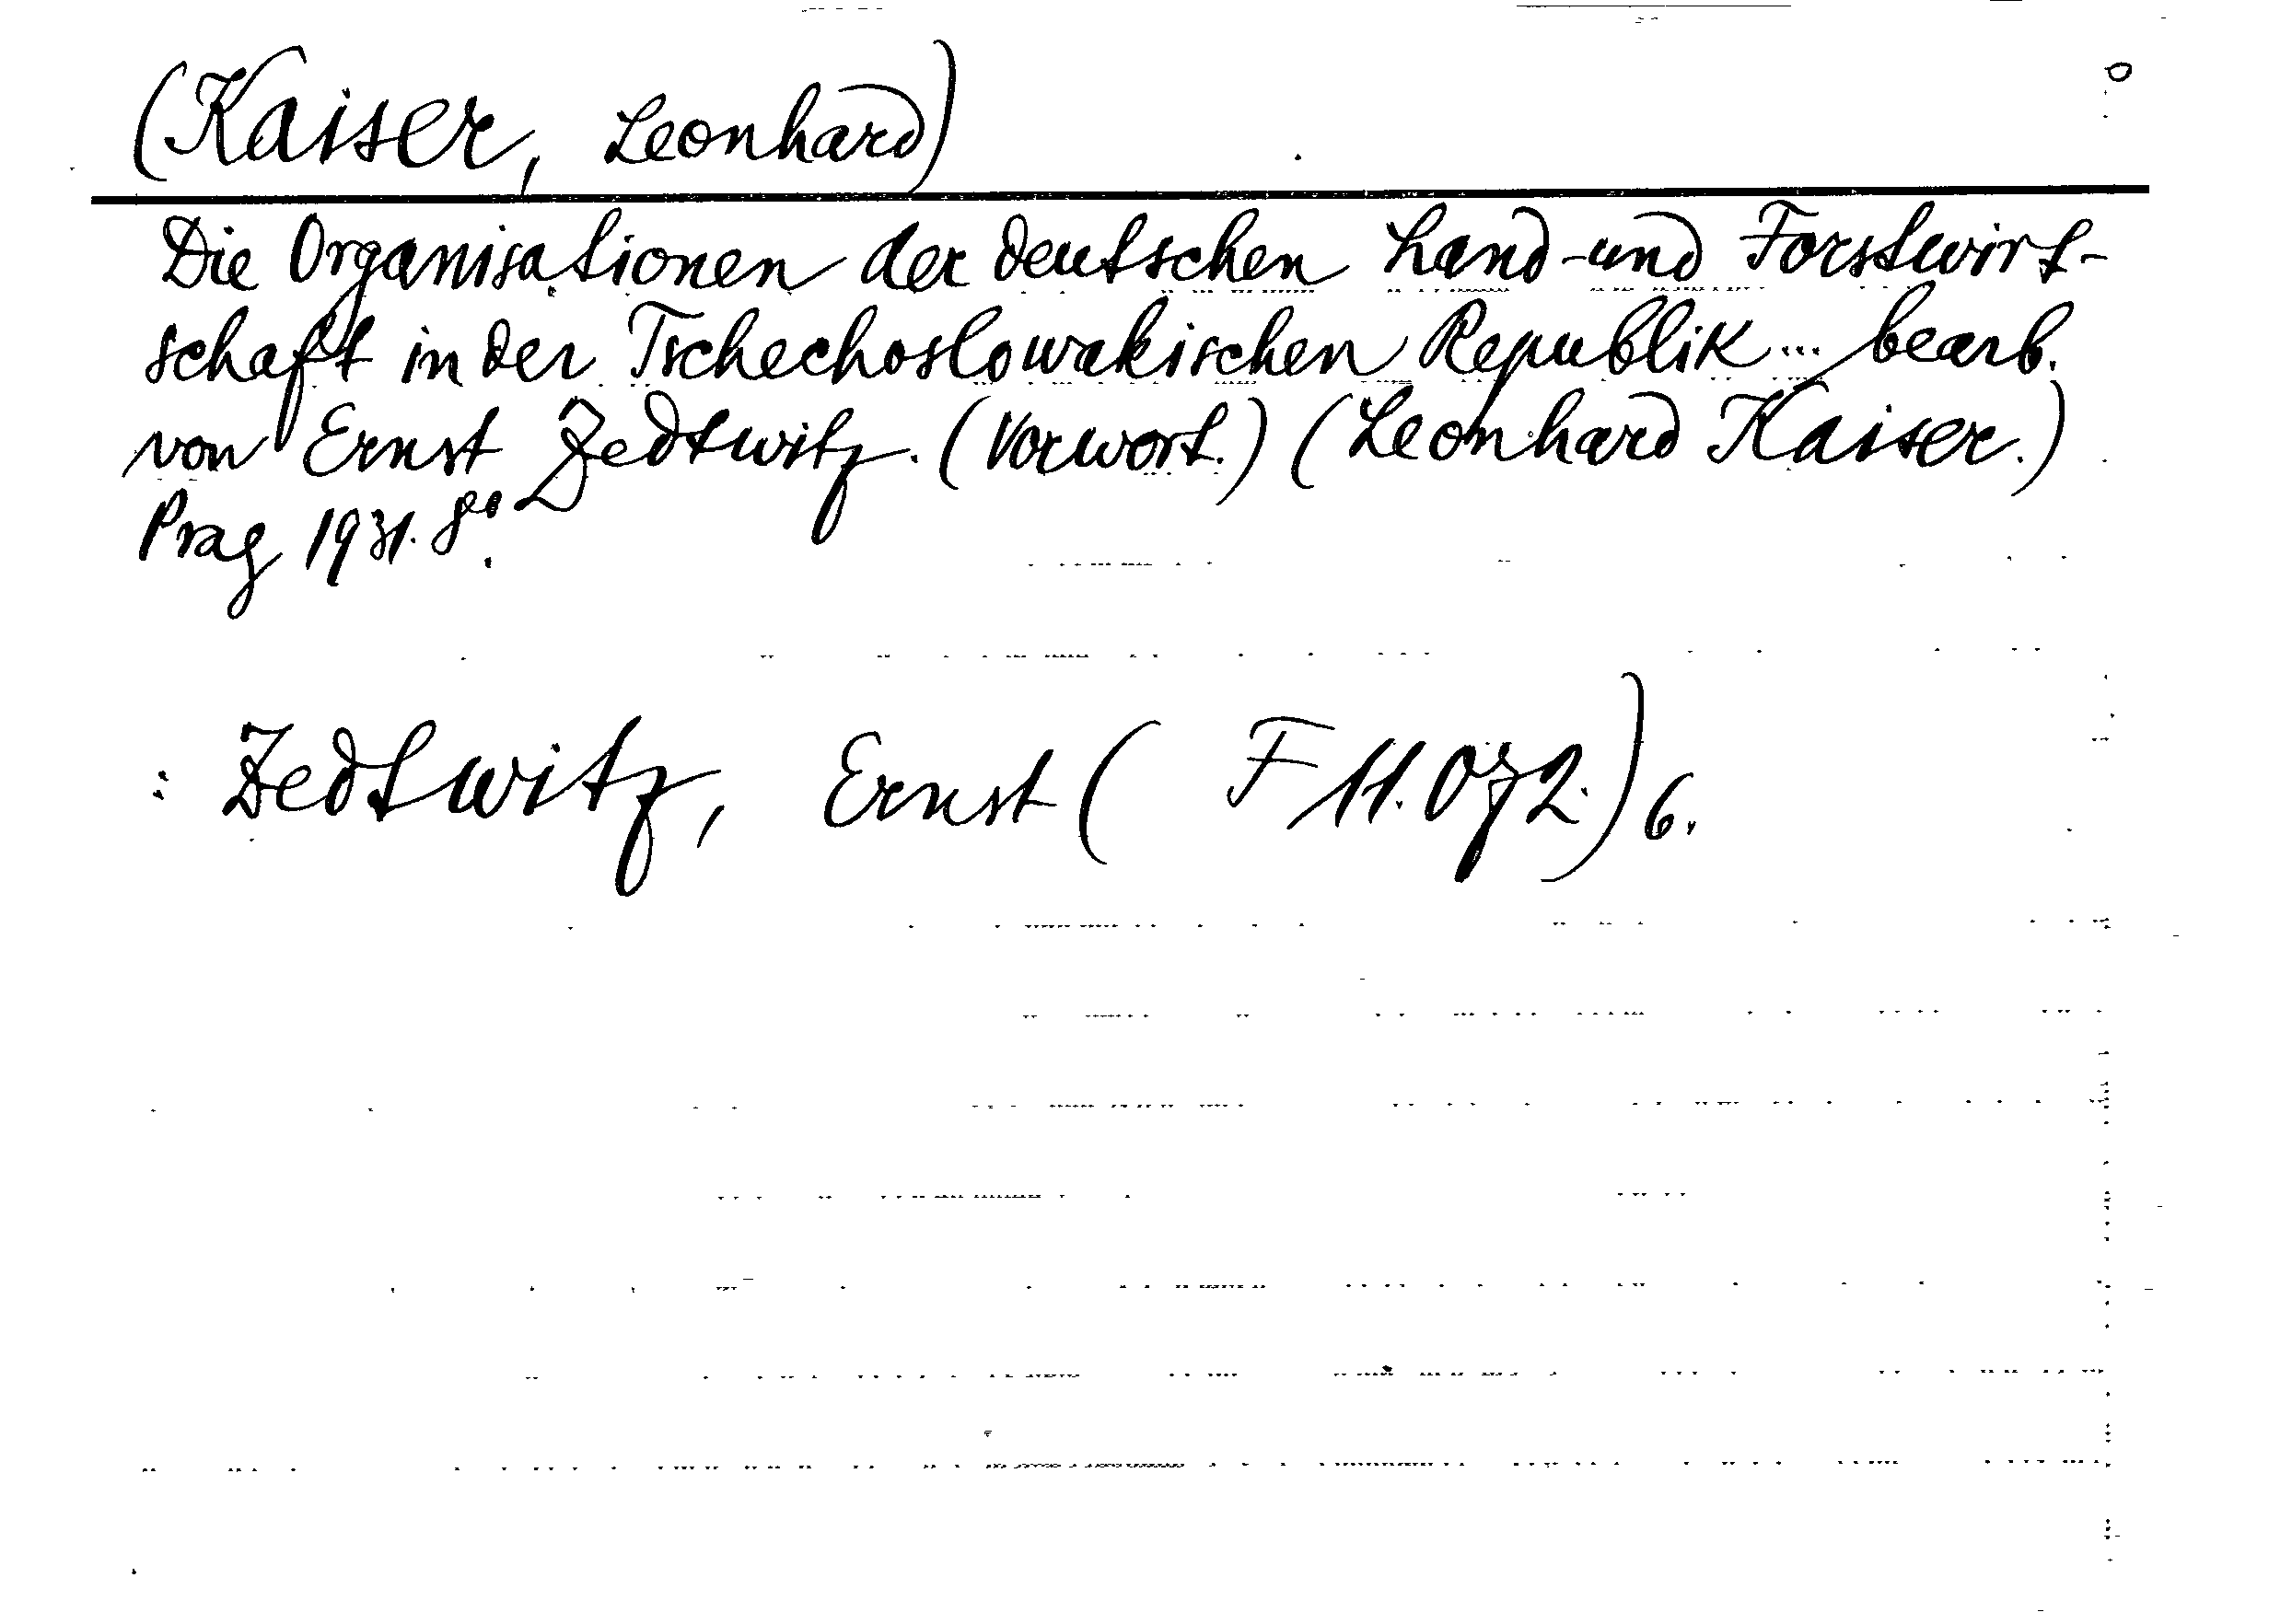 (Kaiser, Leonhard)
Die Organisationen der deutschen Land- und Forstwirt-
schaft in der Tschechoslowakischen Republik ... bearb.
von Ernst Zedtwitz. (Vorwort.) (Leonhard Kaiser.)
Prag 1931. 8°.
: Zedtwitz, Ernst ( F 11.072.) 6.